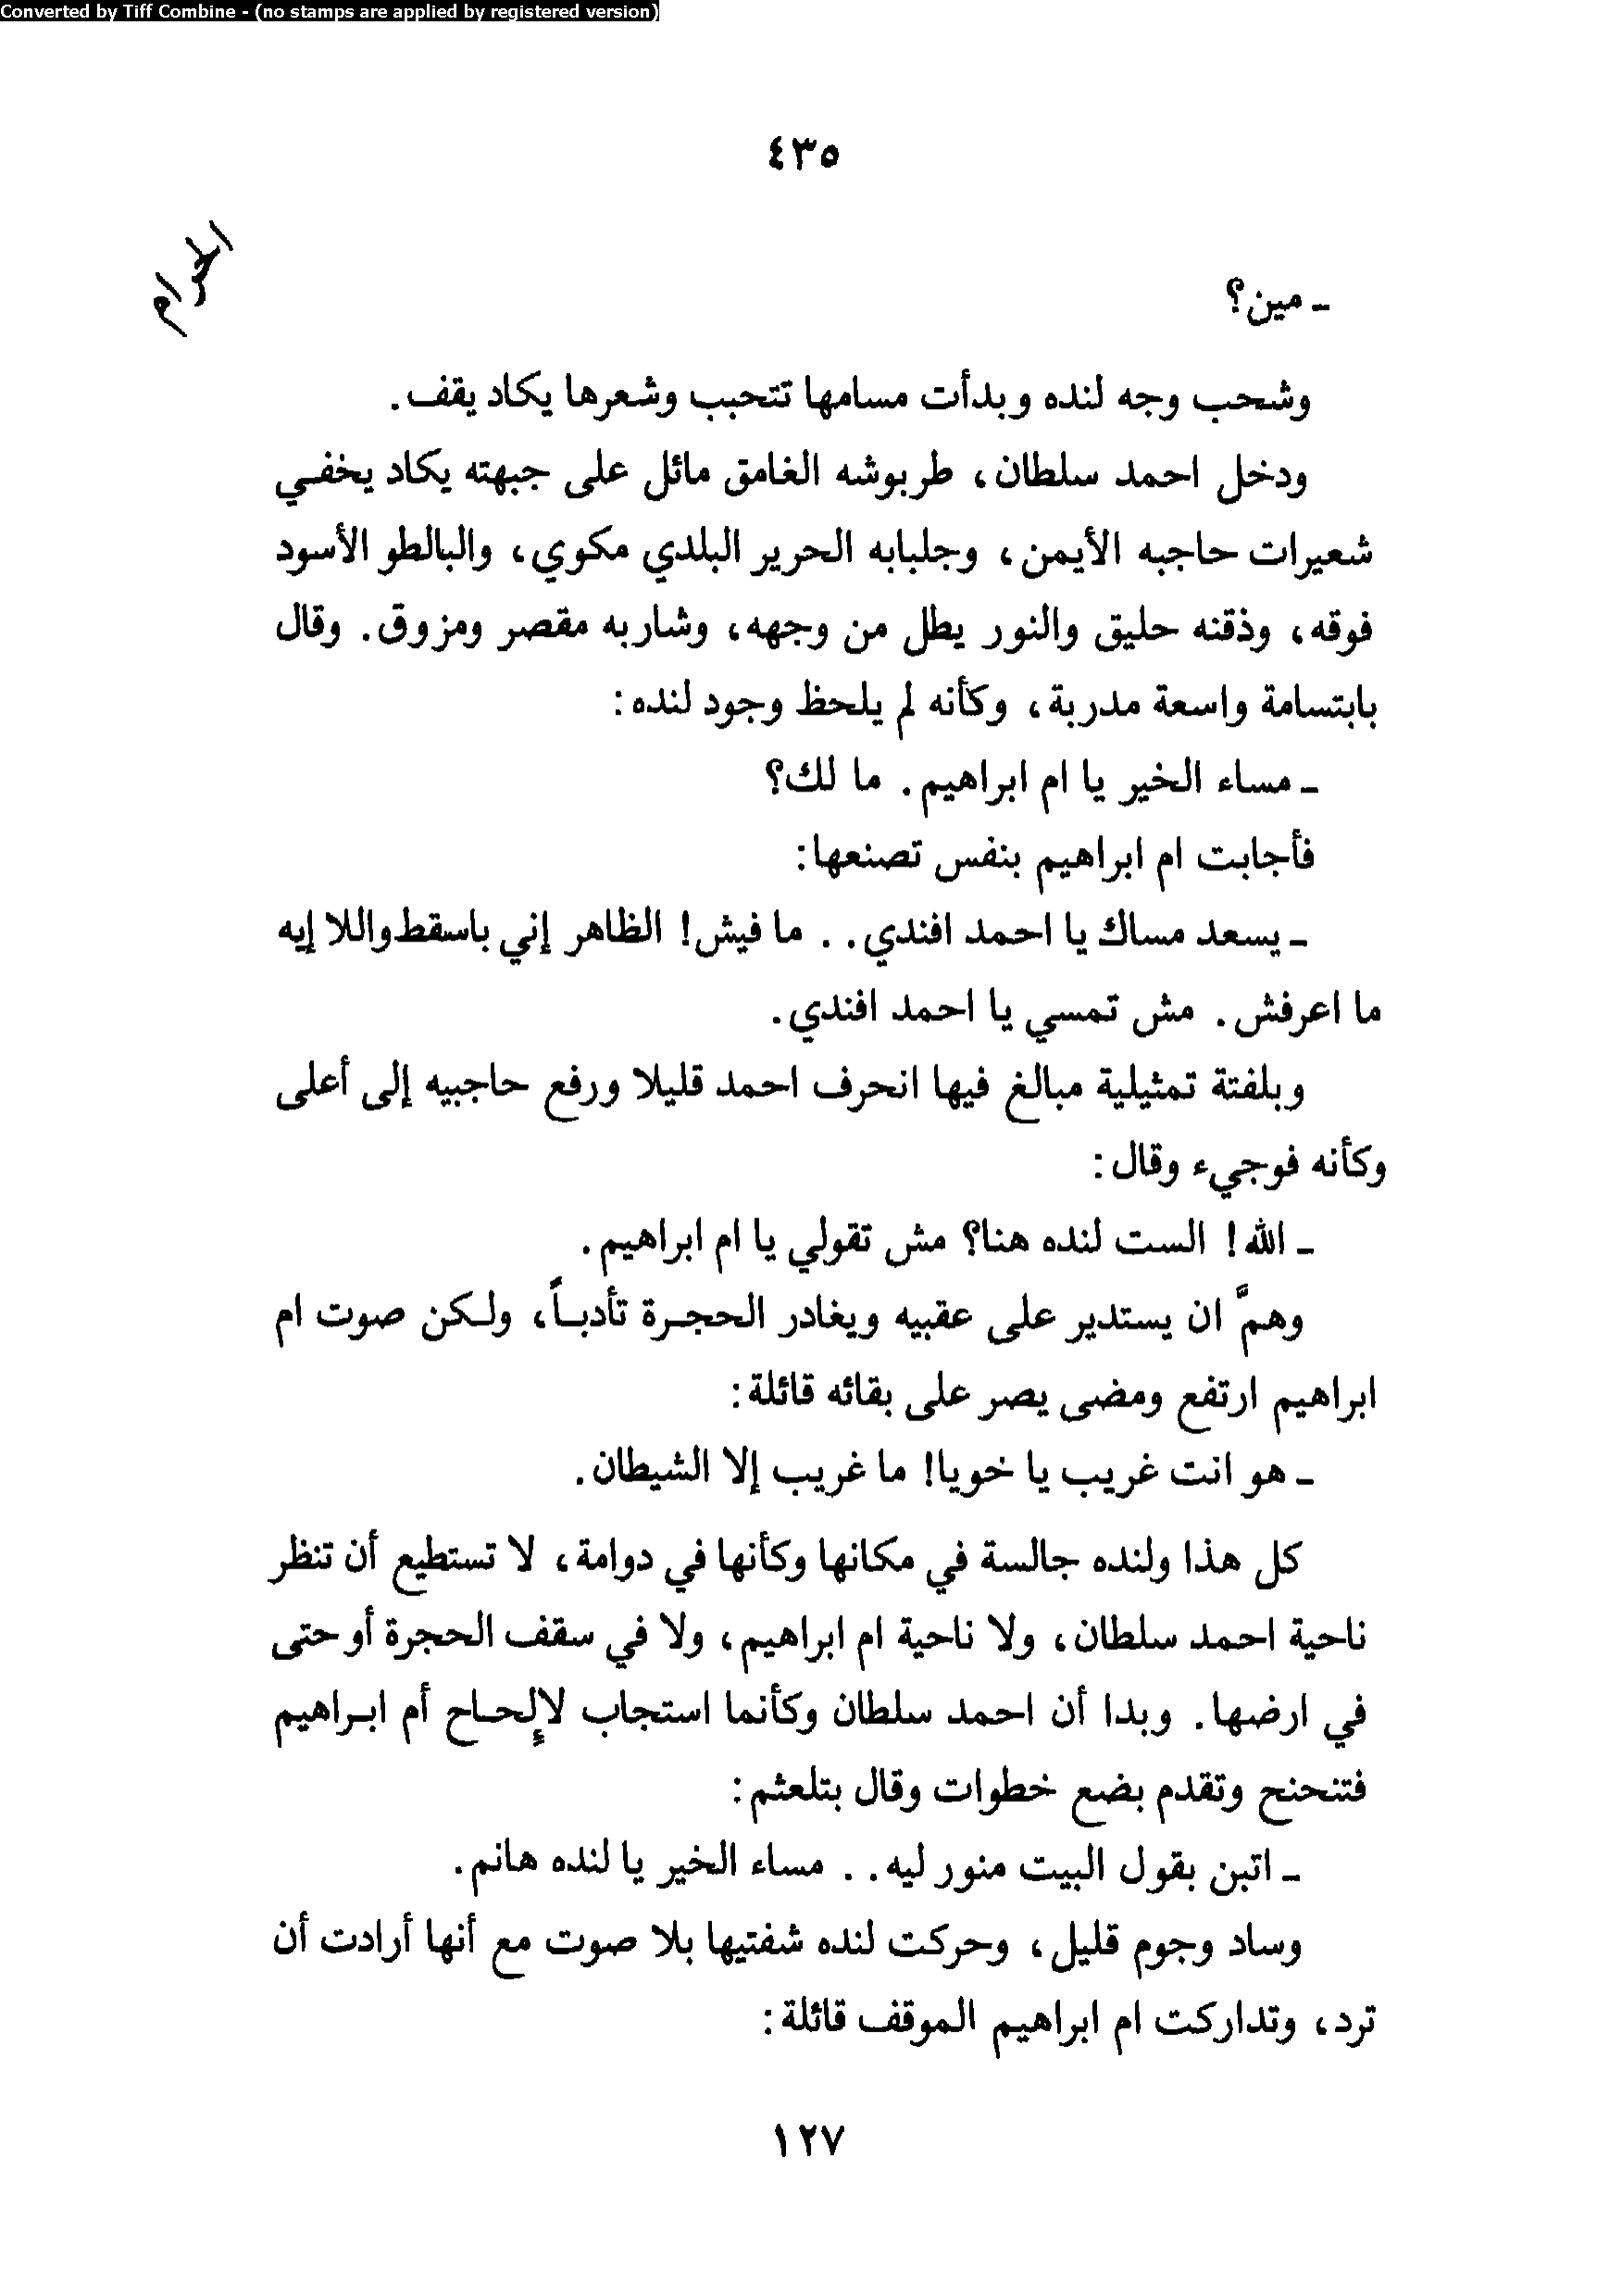 Converted by Tiff Combine - (no stamps are applied by registered version)
٤٣٥
الحرام
ـ مين؟
وشحب وجه لنده وبدأت مسامها تتحبب وشعرها يكاد يقف.
ودخل احمد سلطان، طربوشه الغامق مائل على جبهته يكاد يخفي
شعيرات حاجبه الأيمن، وجلبابه الحرير البلدي مكوي، والبالطو الأسود
فوقه، وذقنه حليق والنور يطل من وجهه، وشاربه مقصر ومزوق. وقال
بابتسامة واسعة مدربة، وكأنه لم يلحظ وجود لنده:
ـ مساء الخير يا ام ابراهيم. ما لك؟
فأجابت ام ابراهيم بنفس تصنعها:
ـ يسعد مساك يا احمد افندي.. ما فيش! الظاهر إني باسقط واللا إيه
ما اعرفش. مش تمسي يا احمد افندي.
وبلفتة تمثيلية مبالغ فيها انحرف احمد قليلا ورفع حاجبيه إلى أعلى
وكأنه فوجيء وقال:
ـ الله! الست لنده هنا؟ مش تقولي يا ام ابراهيم.
وهمَّ ان يستدير على عقبيه ويغادر الحجرة تأدباً، ولكن صوت ام
ابراهيم ارتفع ومضى يصر على بقائه قائلة:
ـ هو انت غريب يا خويا! ما غريب إلا الشيطان.
كل هذا ولنده جالسة في مكانها وكأنها في دوامة، لا تستطيع أن تنظر
ناحية احمد سلطان، ولا ناحية ام ابراهيم، ولا في سقف الحجرة أو حتى
في ارضها. وبدا أن احمد سلطان وكأنما استجاب لإلحاح أم ابراهيم
فتنحنح وتقدم بضع خطوات وقال بتلعثم:
ـ اتبن بقول البيت منور ليه.. مساء الخير يا لنده هانم.
وساد وجوم قليل، وحركت لنده شفتيها بلا صوت مع أنها أرادت أن
ترد، وتداركت ام ابراهيم الموقف قائلة:
١٢٧